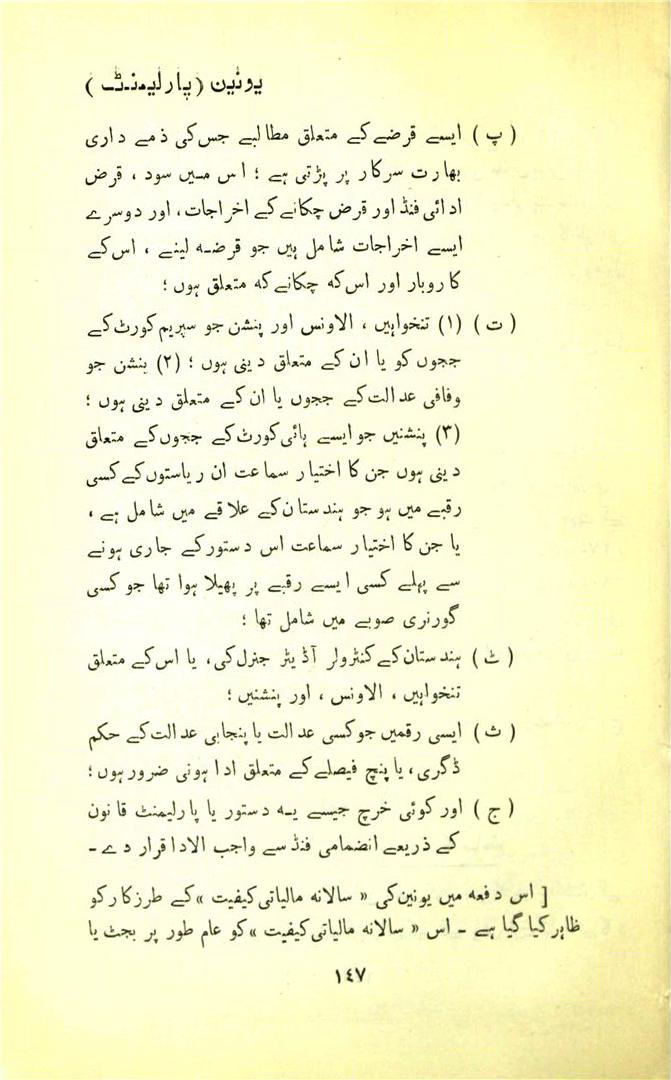 یونین (پارلیمنٹ)
(پ) ایسے قرضے کے متعلق مطالبے جس کی ذمے داری
بھارت سرکار پر پڑتی ہے ؛ اس میں سود ، قرض
ادائی فنڈ اور قرض چکانے کے اخراجات، اور دوسرے
ایسے اخراجات شامل ہیں جو قرضہ لینے ، اس کے
کاروبار اور اس کہ چکانے کہ متعلق ہوں ؛
(ت) (۱) تنخواہیں ، الاونس اور پنشن جو سپریم کورٹ کے
ججوں کو یا ان کے متعلق دینی ہوں ؛ (۲) بنشن جو
وفاقی عدالت کے ججوں یا ان کے متعلق دینی ہوں ؛
(۳) پنشنیں جو ایسے ہائی کورٹ کے ججوں کے متعلق
دینی ہوں جن کا اختیار سماعت ان ریاستوں کے کسی
رقبے میں ہو جو ہندستان کے علاقے میں شامل ہے ،
یا جن کا اختیار سماعت اس دستور کے جاری ہونے
سے پہلے کسی ایسے رقبے پر پھیلا ہوا تھا جو کسی
گورنری صوبے میں شامل تھا ؛
(ٹ) ہندستان کے کنٹرولر آڈیٹر جنرل کی، یا اس کے متعلق
تنخواہیں ، الاونس ، اور پنشنیں ؛
(ث) ایسی رقمیں جو کسی عدالت یا پنچایی عدالت کے حکم
ڈگری، یا پنچ فیصلے کے متعلق ادا ہونی ضرور ہوں ؛
(ج) اور کوئی خرچ جیسے یہ دستور یا پارلیمنٹ قانون
کے ذریعے انضمامی فنڈ سے واجب الادا قرار دے ـ
[ اس دفعہ میں یونین کی « سالانہ مالیاتی کیفیت » کے طرز کار کو
ظاہر کیا گیا ہے ـ اس « سالانہ مالیاتی کیفیت » کو عام طور پر بجٹ یا
۱٤۷